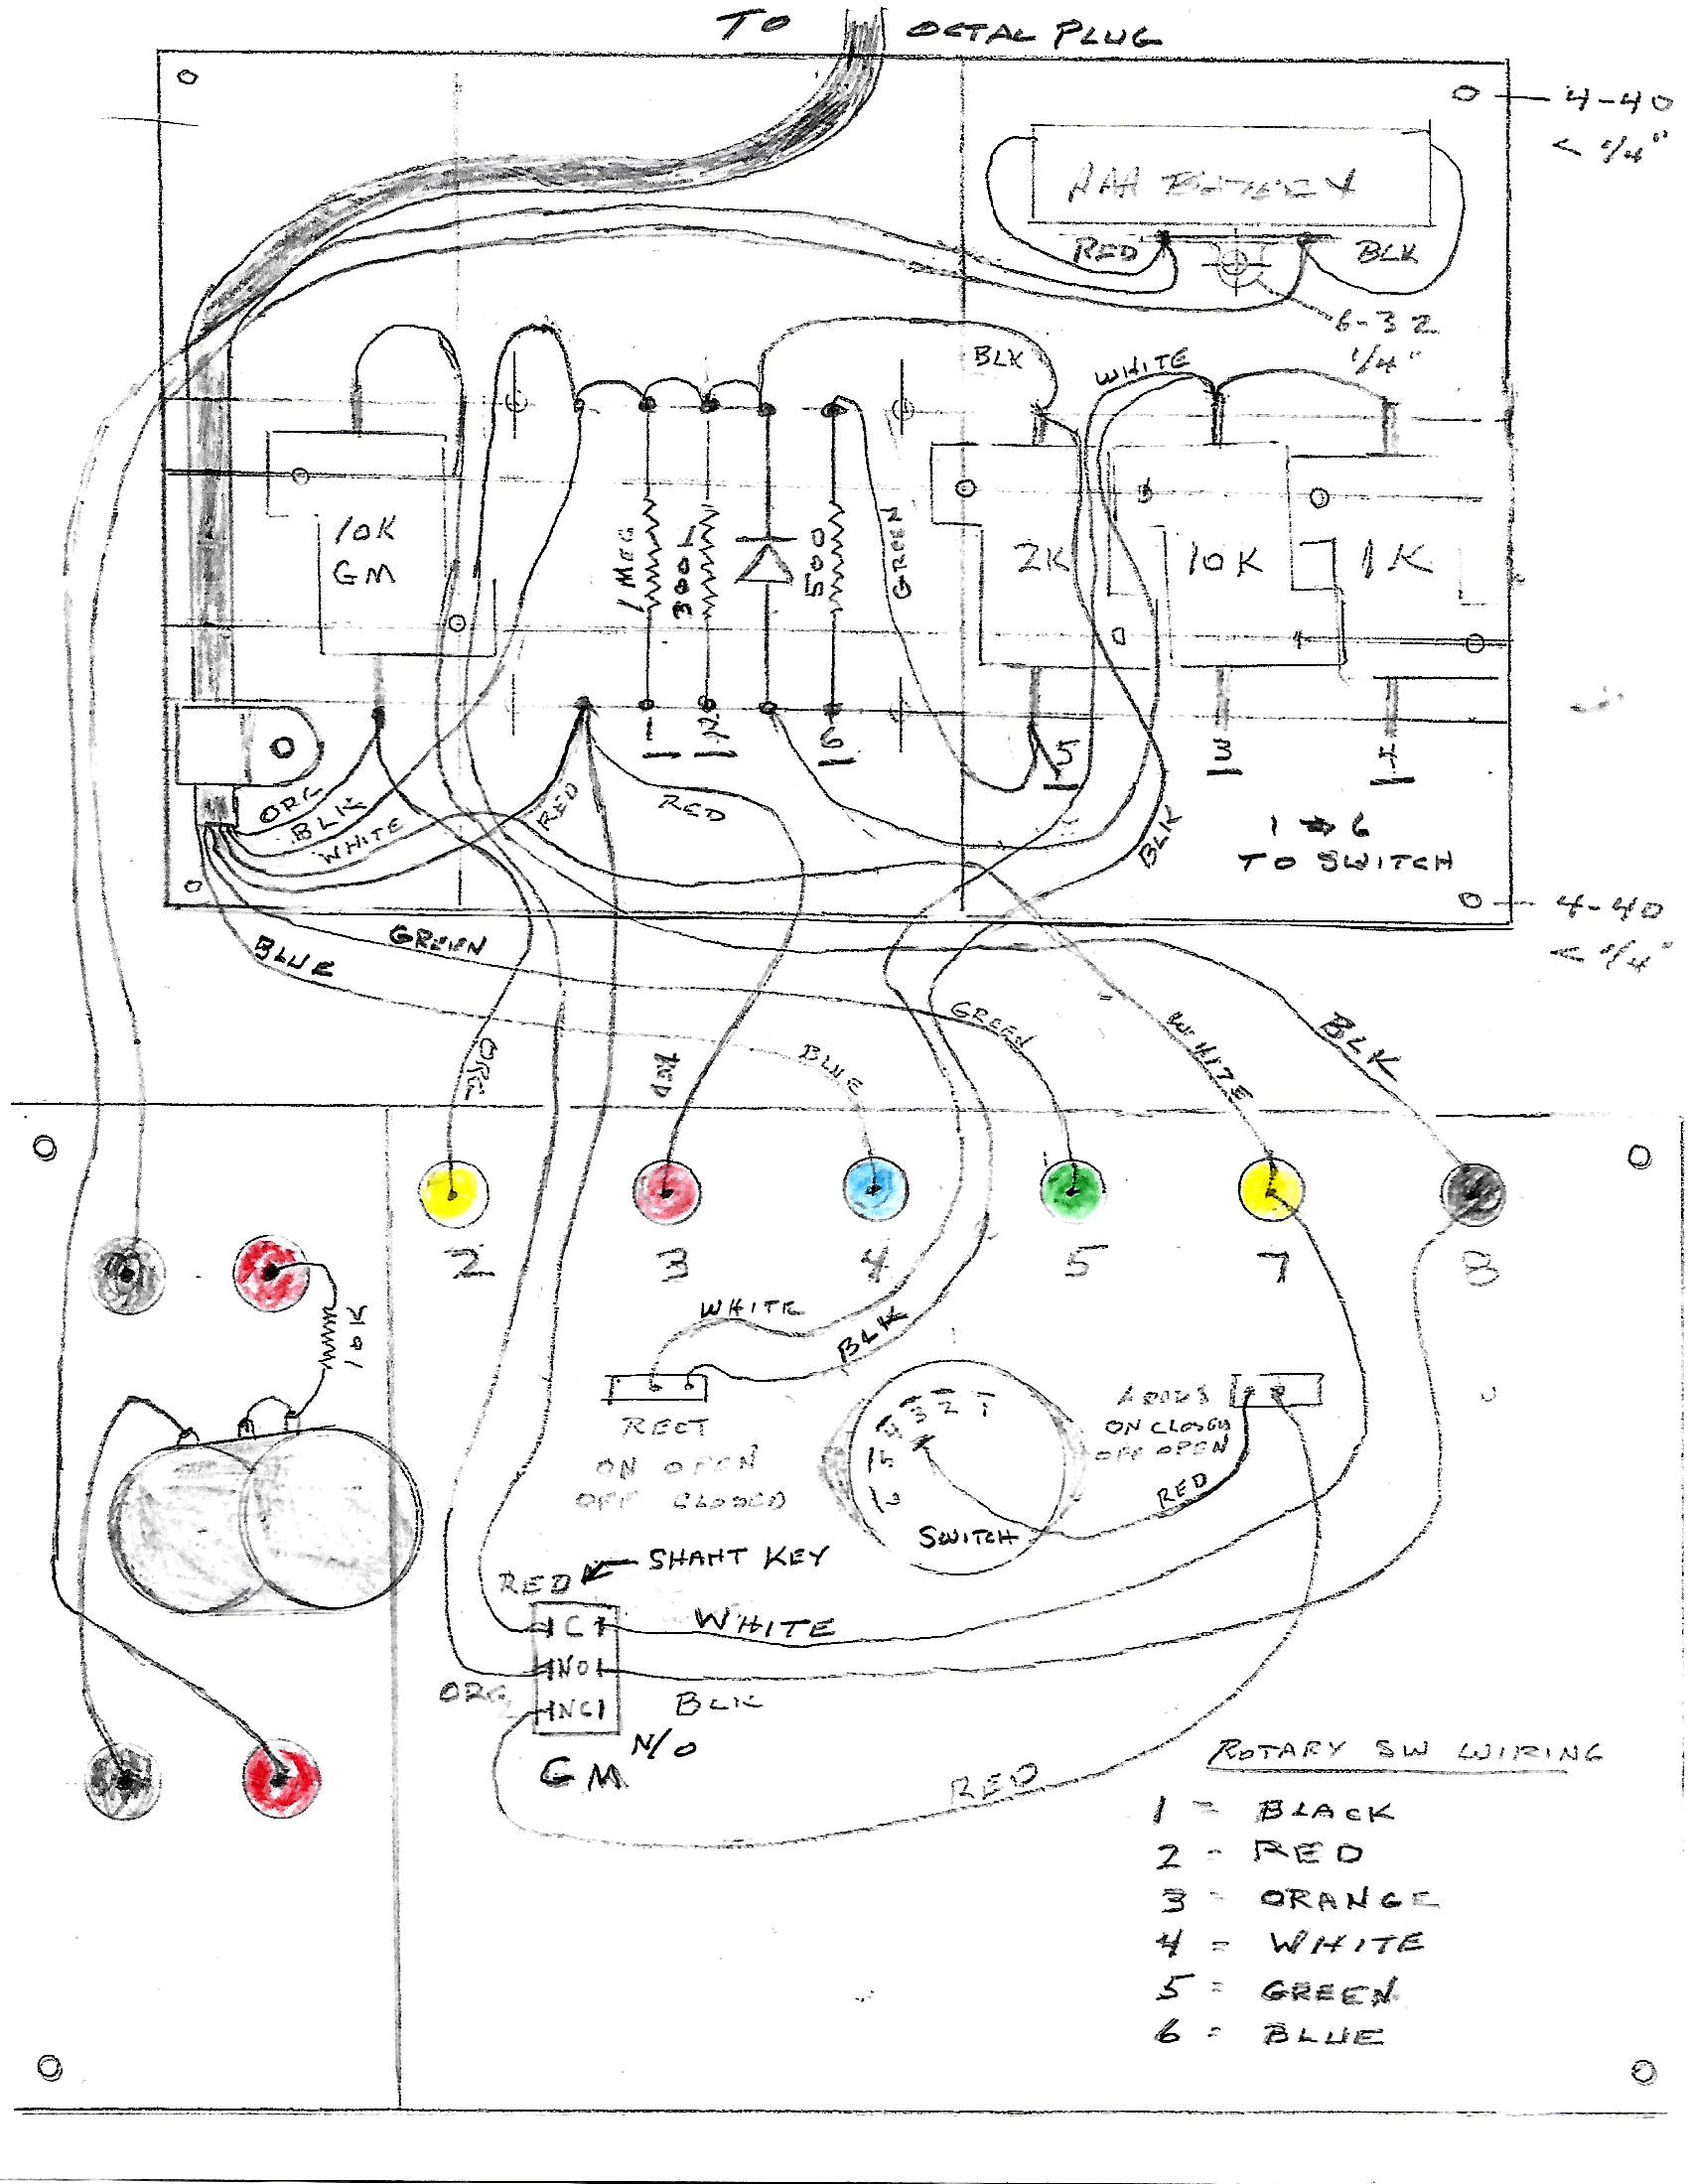 TO OCTAL PLUG
4-40
< 1/4"
AAA BATTERY
RED
BLK
6-32
1/4"
BLK
WHITE
10K
GM
1 MEG
3001
500
GREEN
2K
10K
1K
1
2
6
5
3
4
ORG
BLK
WHITE
RED
RED
BLK
1 → 6
TO SWITCH
4-40
< 1/4"
BLUE
GREEN
ORG
RED
BLUE
GREEN
WHITE
BLK
2
3
4
5
7
8
10K
WHITE
BLK
RECT
ON OPEN
OFF CLOSED
1
2
3
4
5
6
SWITCH
ON CLOSED
OFF OPEN
RED
RED
SHANT KEY
C
NO
NC
WHITE
ORG
BLK
N/O
GM
RED
ROTARY SW WIRING
1 = BLACK
2 - RED
3 - ORANGE
4 = WHITE
5 = GREEN
6 = BLUE